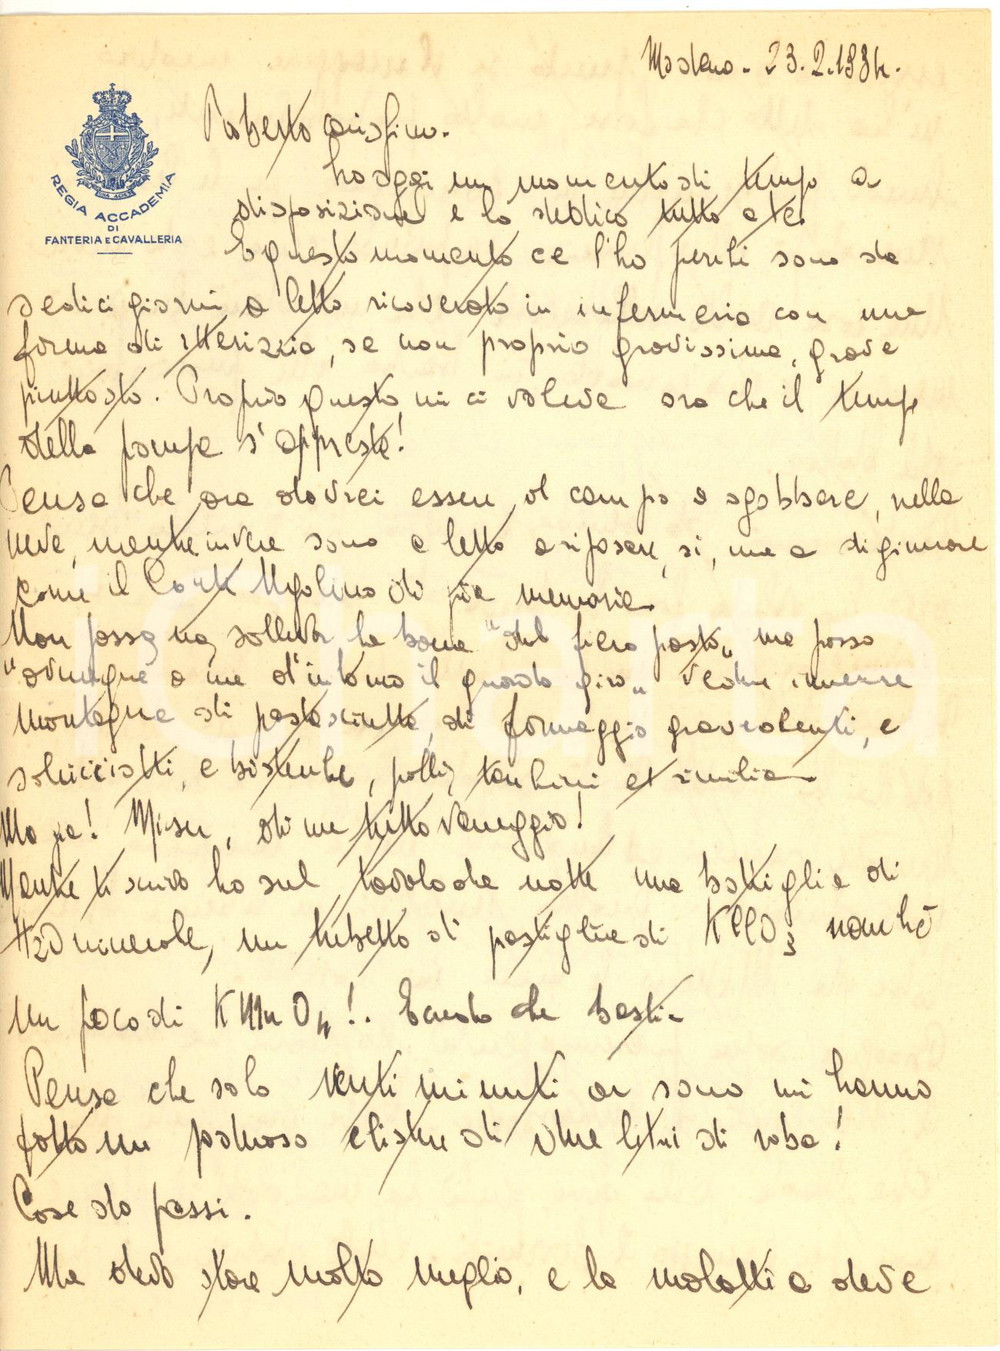 Modena - 23.2.1934.
REGIA ACCADEMIA
DI
FANTERIA E CAVALLERIA
Roberto carissimo.
ho oggi un momento di tempo a
disposizione e lo dedico tutto a te.
E questo momento ce l'ho perchè sono da
sedici giorni a letto ricoverato in infermeria con una
forma di itterizia, se non proprio gravissima, grave
piuttosto. Proprio questo mi ci voleva ora che il tempo
della pompa s'appresta!
Pensa che ora dovrei essere al campo a sgobbare, nella
neve, mentre invece sono a letto a riposare, sì, ma a digiunare
come il Conte Ugolino di pia memoria.
Non posso, no, sollevar la bocca "dal fiero pasto", ma posso
"ovunque a me d'intorno il guardo giro" veder immense
montagne di pastasciutta, di formaggio graveolenti, e
salsicciotti, e bistecche, polli, tacchini et similia.
Ma va! Miser, di me tutto vaneggio!
Mentre ti scrivo ho sul tavolo da notte una bottiglia di
H2O minerale, un tubetto di pastiglie di KClO3 nonchè
un poco di KMnO4!. Credo che basti.
Pensa che solo venti minuti or sono mi hanno
fatto un poderoso clistere di due litri di roba!
Cose da pazzi.
Ma devo stare molto meglio, e la malattia deve